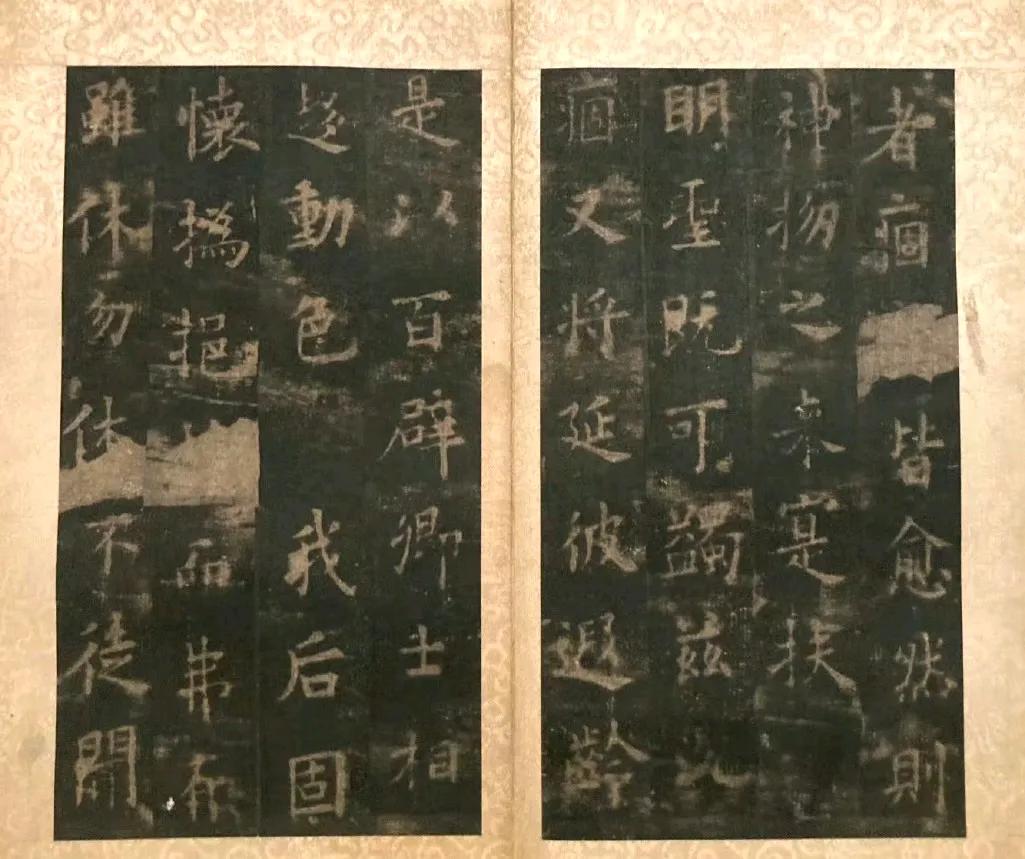 者痼皆愈然則
神物之來寔扶
明聖既可蠲茲沉
痼又將延彼遐齡
是以百辟卿士相
趍動色我后固
懷撝挹而弗有
雖休勿休不徒聞